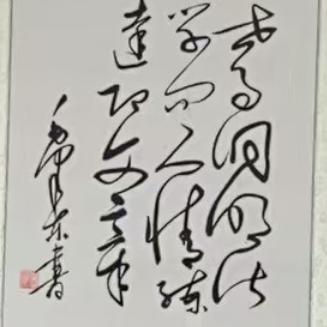 世事洞明皆
学问人情练
达即文章
毛泽东书